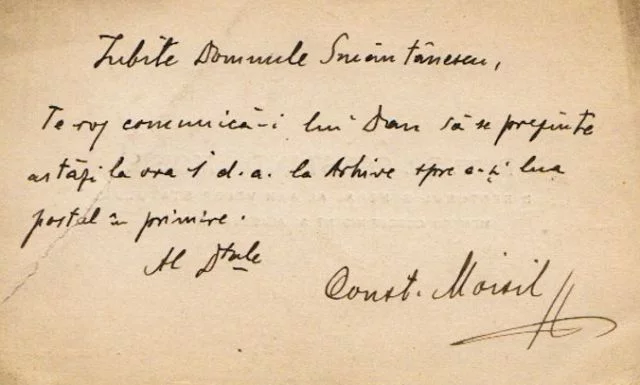 Iubite Domnule Smântânescu,
Te rog comunică-i lui Dan să se prezinte
astăzi la ora 5 d.a. la Arhive spre a-și lua
postul în primire.
Al Dtale
Const. Moisil